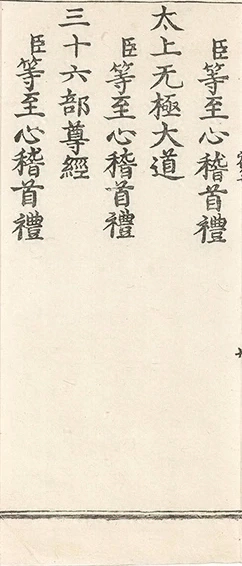 臣等至心稽首禮
太上无極大道
臣等至心稽首禮
三十六部尊經
臣等至心稽首禮